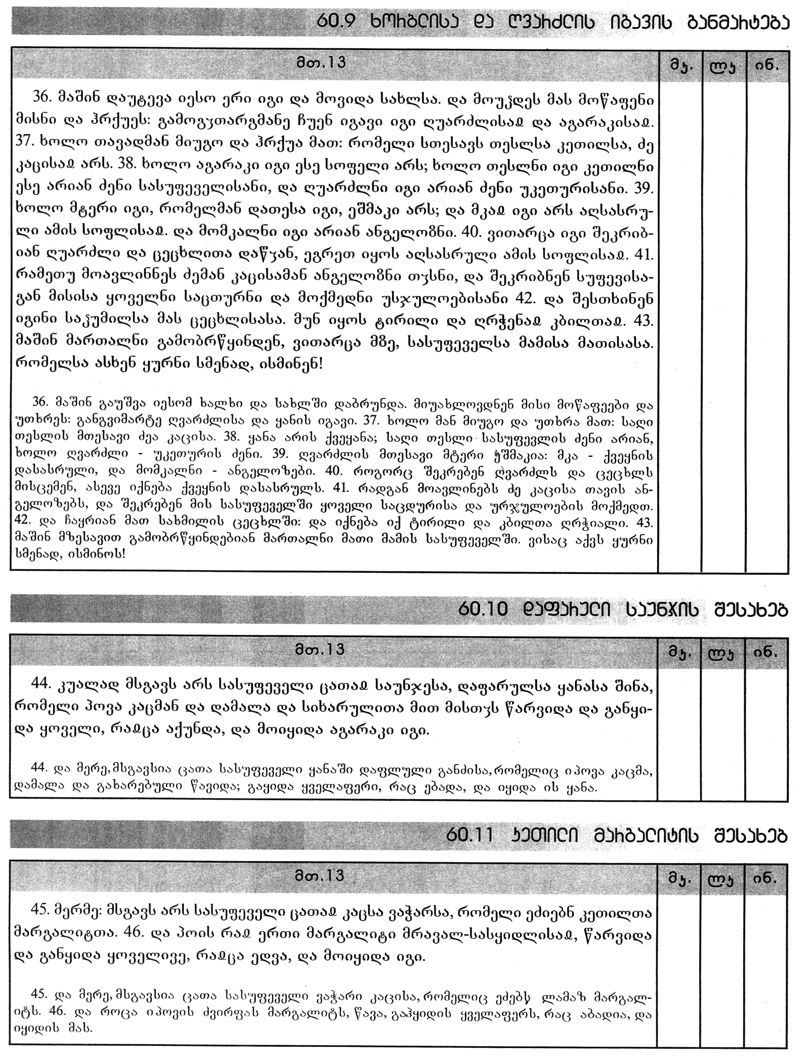 60.9 ხორბლისა და ღვარძლის იგავის განმარტება
მთ.13 მკ. ლკ ინ.
36. მაშინ დაუტევა იესო ერი იგი და მოვიდა სახლსა. და მოუჴდეს მას მოწაფენი
მისნი და ჰრქუეს: გამოგჳთარგმანე ჩუენ იგავი იგი ღუარძლისაჲ და აგარაკისაჲ.
37. ხოლო თავადმან მიუგო და ჰრქუა მათ: რომელი სთესავს თესლსა კეთილსა, ძე
კაცისაჲ არს. 38. ხოლო აგარაკი იგი ესე სოფელი არს; ხოლო თესლნი იგი კეთილნი
ესე არიან ძენი სასუფეველისანი, და ღუარძლნი იგი არიან ძენი უკეთურისანი. 39.
ხოლო მტერი იგი, რომელმან დათესა იგი, ეშმაკი არს; და მკაჲ იგი არს აღსასრუ-
ლი ამის სოფლისაჲ. და მომკალნი იგი არიან ანგელოზნი. 40. ვითარცა იგი შეკრიბ-
იან ღუარძლი და ცეცხლითა დაწჳან, ეგრეთ იყოს აღსასრული ამის სოფლისაჲ. 41.
რამეთუ მოავლინნეს ძემან კაცისამან ანგელოზნი თჳსნი, და შეკრიბნენ სუფევისა-
გან მისისა ყოველნი საცთურნი და მოქმედნი უსჯულოებისანი 42. და შესთხინენ
იგინი საჴუმილსა მას ცეცხლისასა. მუნ იყოს ტირილი და ღრჭენაჲ კბილთაჲ. 43.
მაშინ მართალნი გამობრწყინდენ, ვითარცა მზე, სასუფეველსა მამისა მათისასა.
რომელსა ასხენ ყურნი სმენად, ისმინენ!
36. მაშინ გაუშვა იესომ ხალხი და სახლში დაბრუნდა. მიუახლოვდნენ მისი მოწაფეები და
უთხრეს: განგვიმარტე ღვარძლისა და ყანის იგავი. 37. ხოლო მან მიუგო და უთხრა მათ: საღი
თესლის მთესავი ძეა კაცისა. 38. ყანა არის ქვეყანა; საღი თესლი სასუფევლის ძენი არიან,
ხოლო ღვარძლი - უკეთურის ძენი. 39. ღვარძლის მთესავი მტერი ეშმაკია: მკა - ქვეყნის
დასასრული, და მომკალნი - ანგელოზები. 40. როგორც შეკრებენ ღვარძლს და ცეცხლს
მისცემენ, ასევე იქნება ქვეყნის დასასრულს. 41. რადგან მოავლინებს ძე კაცისა თავის ან-
გელოზებს, და შეკრებენ მის სასუფეველში ყოველი საცდურისა და ურჯულოების მოქმედთ.
42. და ჩაყრიან მათ სახმილის ცეცხლში: და იქნება იქ ტირილი და კბილთა ღრჭიალი. 43.
მაშინ მზესავით გამობრწყინდებიან მართალნი მათი მამის სასუფეველში. ვისაც აქვს ყური
სმენად, ისმინოს!
60.10 დაფარული საუნჯის შესახებ
მთ.13 მკ. ლკ ინ.
44. კუალად მსგავს არს სასუფეველი ცათაჲ საუნჯესა, დაფარულსა ყანასა შინა,
რომელი პოვა კაცმან და დამალა და სიხარულითა მით მისთჳს წარვიდა და განყი-
და ყოველი, რაჲცა აქუნდა, და მოიყიდა აგარაკი იგი.
44. და მერე, მსგავსია ცათა სასუფეველი ყანაში დაფლული განძისა, რომელიც იპოვა კაცმა,
დამალა და გახარებული წავიდა; გაყიდა ყველაფერი, რაც ებადა, და იყიდა ის ყანა.
60.11 კეთილი მარგალიტის შესახებ
მთ.13 მკ. ლკ ინ.
45. მერმე: მსგავს არს სასუფეველი ცათაჲ კაცსა ვაჭარსა, რომელი ეძიებნ კეთილთა
მარგალიტთა. 46. და პოის რაჲ ერთი მარგალიტი მრავალ-სასყიდლისაჲ, წარვიდა
და განყიდა ყოველივე, რაჲცა ედვა, და მოიყიდა იგი.
45. და მერე, მსგავსია ცათა სასუფეველი ვაჭარი კაცისა, რომელიც ეძებს ლამაზ მარგალ-
იტს. 46. და როცა იპოვის ძვირფას მარგალიტს, წავა, გაჰყიდის ყველაფერს, რაც აბადია, და
იყიდის მას.